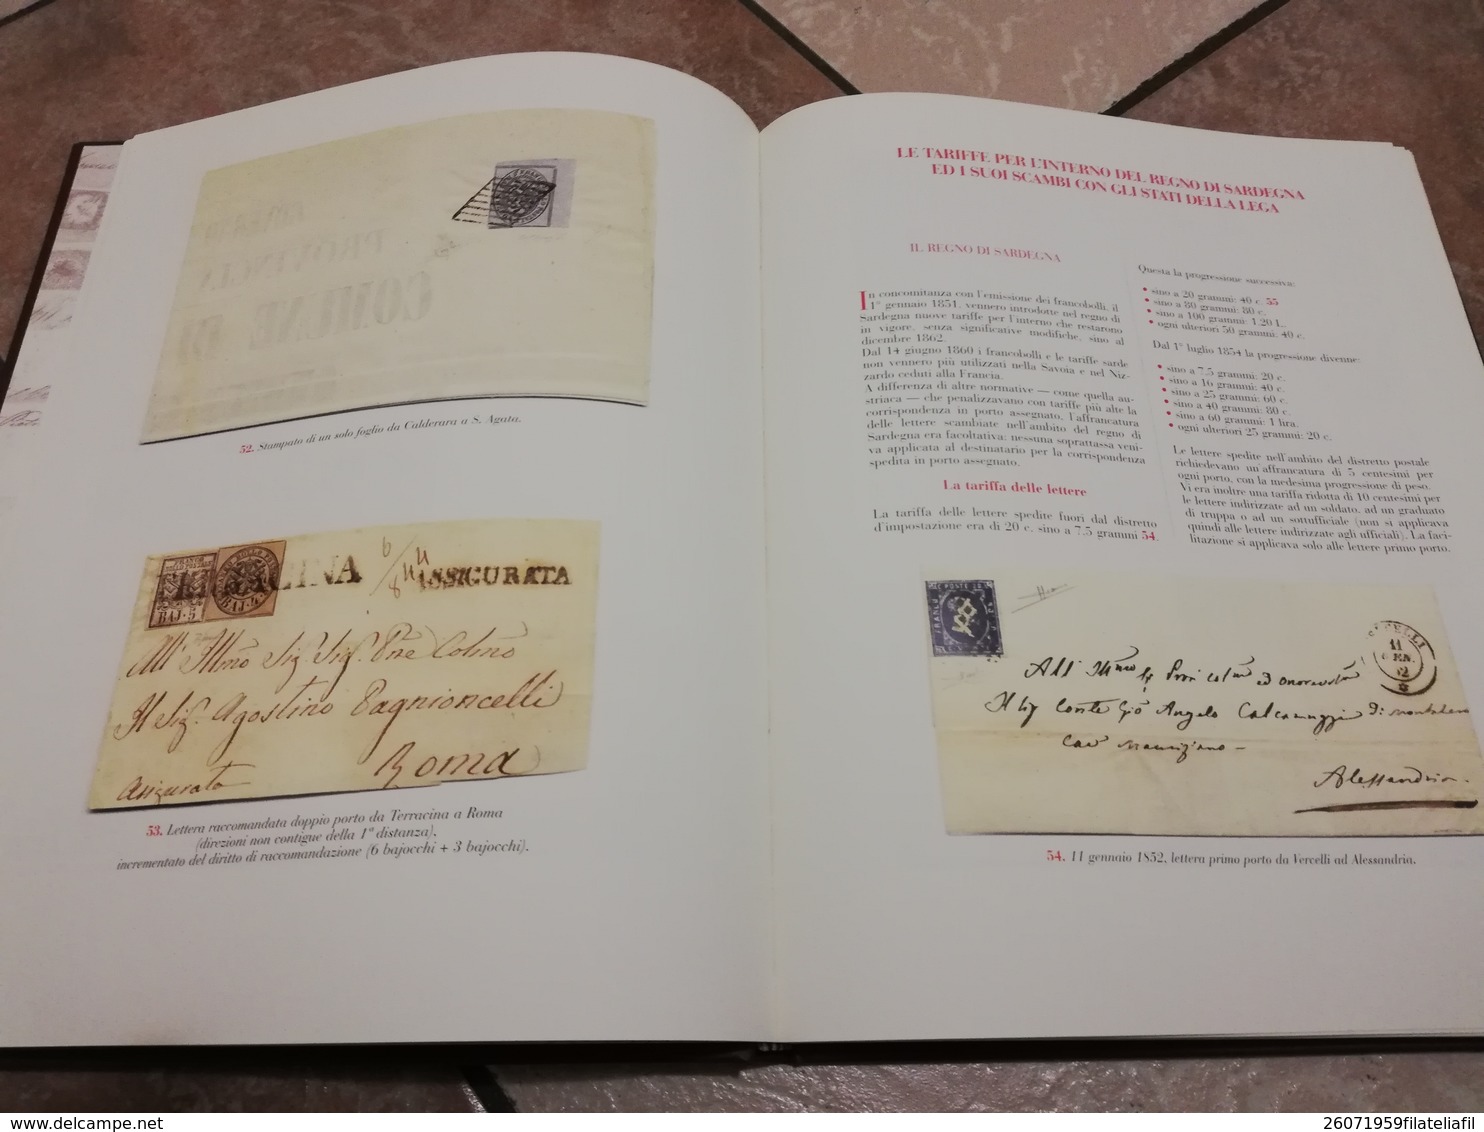 COMUNE DI
PROVINCIA
52. Stampato di un solo foglio da Calderara a S. Agata.
BAJ. 5
BAJ. 4
CINA
ASSICURATA
All' Illmo Sig. Sig. Pne Colmo
Il Sig. Agostino Pagnioncelli
Roma
Assicurata
53. Lettera raccomandata doppio porto da Terracina a Roma
(direzioni non contigue della 1ª distanza),
incrementato del diritto di raccomandazione (6 bajocchi + 3 bajocchi).
LE TARIFFE PER L'INTERNO DEL REGNO DI SARDEGNA
ED I SUOI SCAMBI CON GLI STATI DELLA LEGA
IL REGNO DI SARDEGNA
In concomitanza con l'emissione dei francobolli, il
1° gennaio 1851, vennero introdotte nel regno di
Sardegna nuove tariffe per l'interno che restarono
in vigore, senza significative modifiche, sino al
dicembre 1862.
Dal 14 giugno 1860 i francobolli e le tariffe sarde
non vennero più utilizzati nella Savoia e nel Niz-
zardo ceduti alla Francia.
A differenza di altre normative — come quella au-
striaca — che penalizzavano con tariffe più alte la
corrispondenza in porto assegnato, l'affrancatura
delle lettere scambiate nell'ambito del regno di
Sardegna era facoltativa: nessuna soprattassa veni-
va applicata al destinatario per la corrispondenza
spedita in porto assegnato.
La tariffa delle lettere
La tariffa delle lettere spedite fuori dal distretto
d'impostazione era di 20 c. sino a 7.5 grammi 54.
Questa la progressione successiva:
• sino a 20 grammi: 40 c. 55
• sino a 80 grammi: 80 c.
• sino a 100 grammi: 1,20 L.
• ogni ulteriori 50 grammi: 40 c.
Dal 1° luglio 1854 la progressione divenne:
• sino a 7.5 grammi: 20 c.
• sino a 16 grammi: 40 c.
• sino a 25 grammi: 60 c.
• sino a 40 grammi: 80 c.
• sino a 60 grammi: 1 lira.
• ogni ulteriori 25 grammi: 20 c.
Le lettere spedite nell'ambito del distretto postale
richiedevano un'affrancatura di 5 centesimi per
ogni porto, con la medesima progressione di peso.
Vi era inoltre una tariffa ridotta di 10 centesimi per
le lettere indirizzate ad un soldato, ad un graduato
di truppa o ad un sottufficiale (non si applicava
quindi alle lettere indirizzate agli ufficiali). La faci-
litazione si applicava solo alle lettere primo porto.
11
GEN.
All'
Il Sig Conte Gio Angelo Calcamuggi di
Alessandria
54. 11 gennaio 1852, lettera primo porto da Vercelli ad Alessandria.
26071959filateliafil